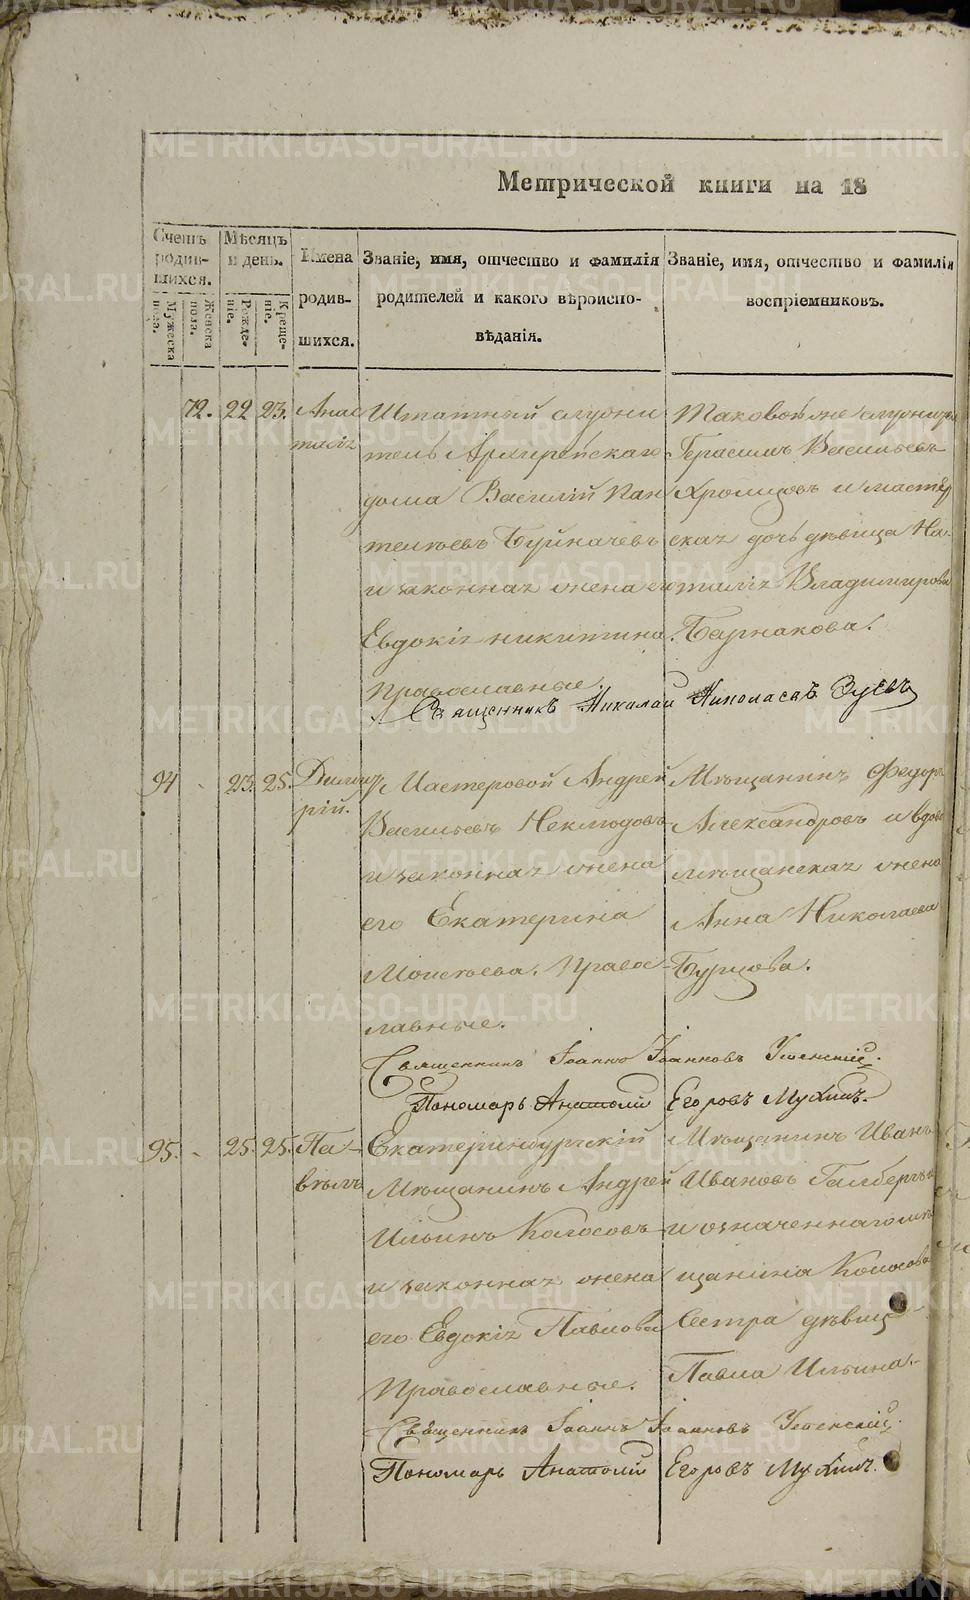 Метрической книги на 18
Счетъ родив-шихся.
Мужеска пола.
Женска пола.
Мѣсяцъ и день.
Рожде-ніе.
Креще-ніе.
Имена родив-шихся.
Званіе, имя, отчество и фамилія
родителей и какого вѣроиспо-
вѣданія.
Званіе, имя, отчество и фамилія
воспріемниковъ.
72. 22 23. Анас
тасія
Штатный служи
тель Архіерейскаго
дома Василій Пан
телѣевъ Буйначевъ
и законная жена его
Евдокія Никитина.
Православные.
Таковой же служитель
Герасимъ Васильевъ
Хромцовъ и мастер
ская дочь дѣвица На-
талія Владимирова
Барнакова.
Священникъ Николай Николаевъ Зуевъ
94 - 23. 25. Димит
рій.
Мастеровой Андрей
Васильевъ Неклюдовъ
и законная жена
его Екатерина
Моисѣева. Право-
славные.
Мѣщанинъ Федоръ
Александровъ и вдова
мѣщанская жена
Анна Николаева
Бурцова.
Священникъ Іоаннъ Іоанновъ Успенскій.
Пономарь Анатолій Егоровъ Мухинъ.
95. - 25. 25. Па-
велъ
Екатеринбургскій
Мѣщанинъ Андрей
Ильинъ Колосовъ
и законная жена
его Евдокія Павлова
Православные.
Мѣщанинъ Иванъ
Ивановъ
и означеннаго мѣ
щанина Колосова
Сестра дѣвица
Павла Ильина.
Священникъ Іоаннъ Іоанновъ Успенскій.
Пономарь Анатолій Егоровъ Мухинъ.
METRIKI.GASO-URAL.RU